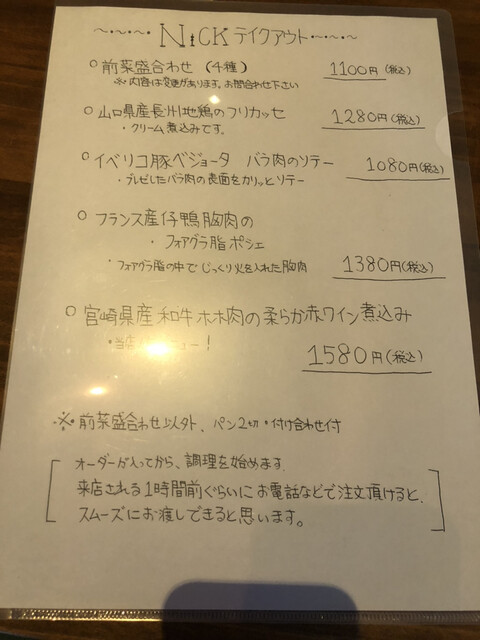 ～・～・～ NiCK テイクアウト～・～・～
○ 前菜盛合わせ (4種) 1100円(税込)
※内容は変更があります。お問合わせ下さい
○ 山口県産長州地鶏のフリカッセ 1280円(税込)
・クリーム煮込みです。
○ イベリコ豚ベジョータ バラ肉のソテー 1080円(税込)
・ブレゼしたバラ肉の表面をカリッとソテー
○ フランス産仔鴨胸肉の
・フォアグラ脂ポシェ
・フォアグラ脂の中でじっくり火を入れた胸肉 1380円(税込)
○ 宮崎県産和牛ホホ肉の柔らか赤ワイン煮込み
・当店 ュー！ 1580円(税込)
※前菜盛合わせ以外、パン2切・付け合わせ付
オーダーが入ってから、調理を始めます.
来店される1時間前ぐらいにお電話などで注文頂けると、
スムーズにお渡しできると思います。